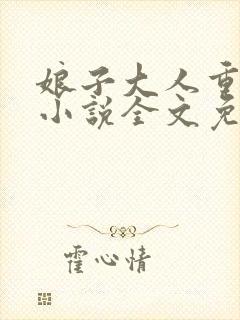 娘子大人重
小说全文免
霍心情